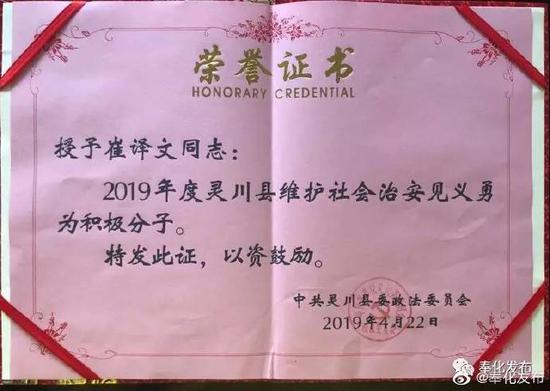 荣誉证书
HONORARY CREDENTIAL
授予崔译文同志：
2019年度灵川县维护社会治安见义勇
为积极分子。
特发此证，以资鼓励。
中共灵川县委政法委员会
2019年4月22日
奉化发布
@奉化发布